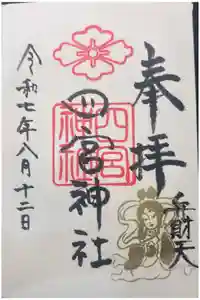 奉拝
弁財天
四宮神社
四宮神社
令和七年八月十二日